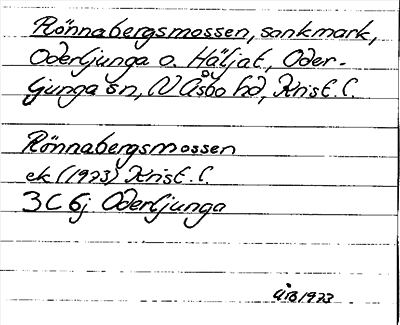 Rönnabergsmossen, sankmark,
Oderljunga o. Häljat, Oder-
ljunga sn, N Åsbo hd, Krist. l.
Rönnabergsmossen
ek (1973) Krist. l.
3C 6j Oderljunga
ÅB 1973